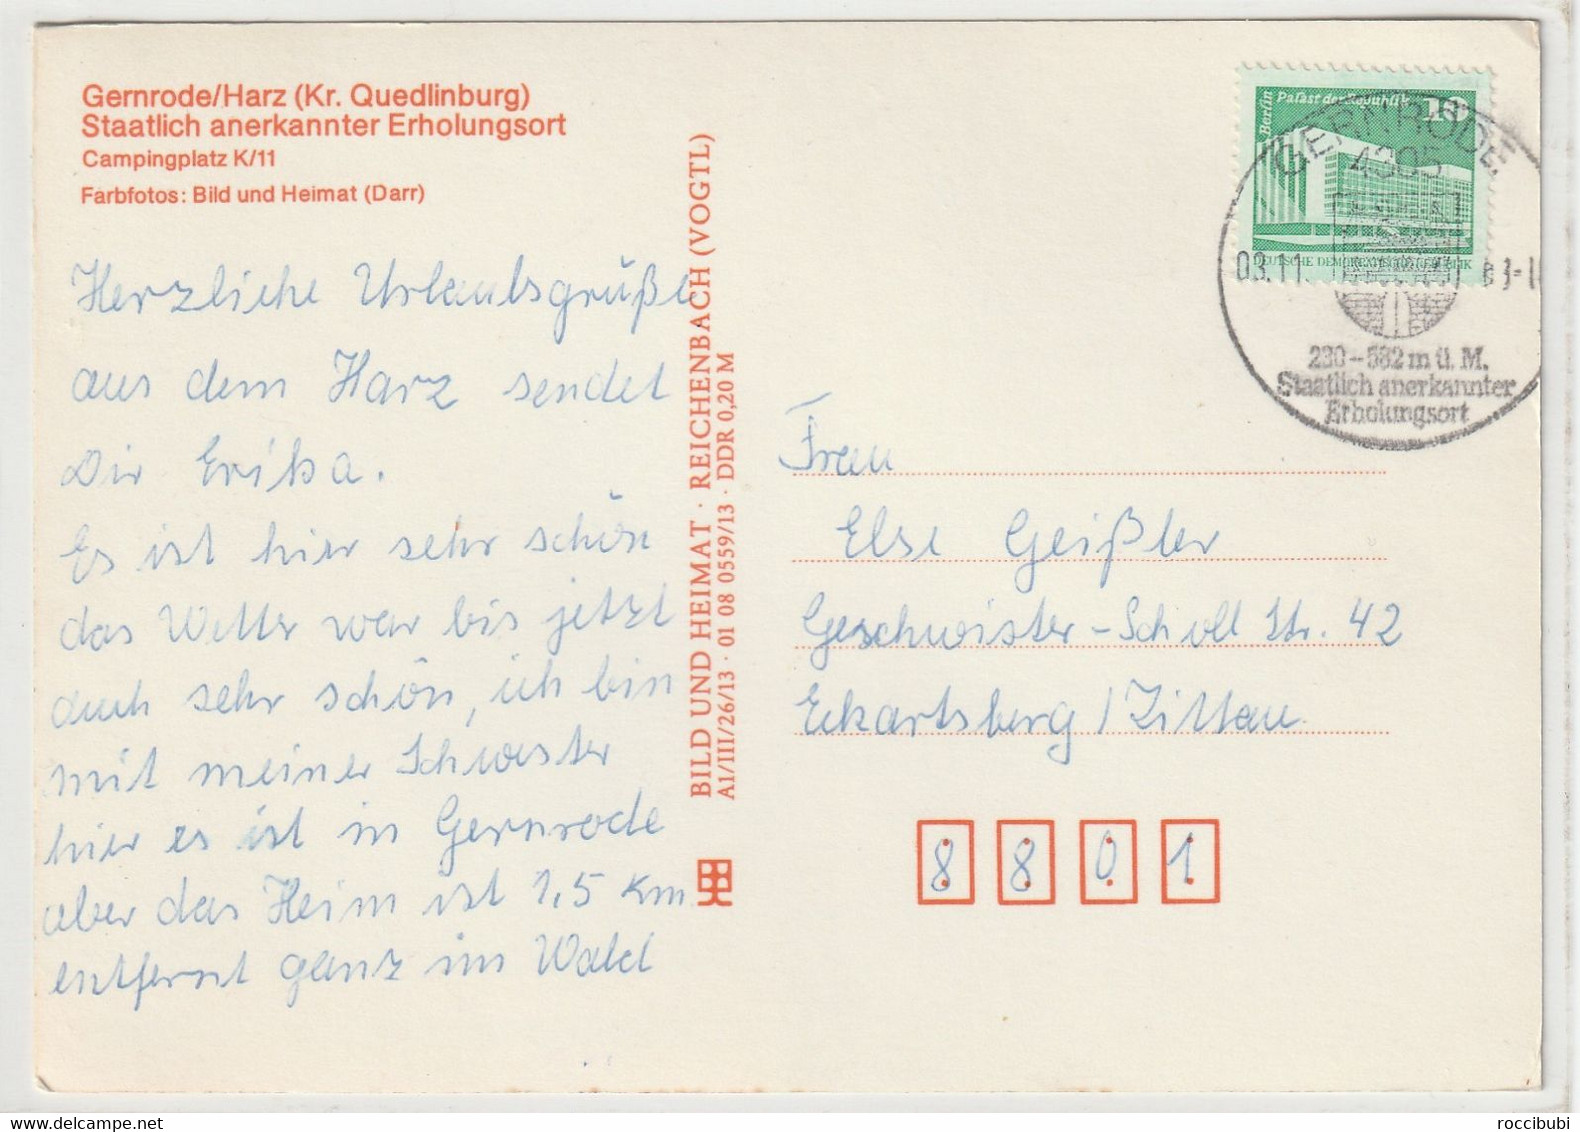 Gernrode/Harz (Kr. Quedlinburg)
Staatlich anerkannter Erholungsort
Campingplatz K/11
Farbfotos: Bild und Heimat (Darr)
Herzliche Urlaubsgrüße
aus dem Harz sendet
Dir Erika.
Es ist hier sehr schön
das Wetter war bis jetzt
auch sehr schön, ich bin
mit meiner Schwester
hier es ist in Gernrode
aber das Heim ist 1,5 km
entfernt ganz im Wald
BILD UND HEIMAT · REICHENBACH (VOGTL)
A1/III/26/13 · 01 08 0559/13 · DDR 0,20 M
Berlin
Palast der Republik
10
DEUTSCHE DEMOKRATISCHE REPUBLIK
GERNRODE
4305
03.11
230–582 m ü. M.
Staatlich anerkannter
Erholungsort
Frau
Else Geißler
Geschwister-Scholl Str. 42
Eckartsberg / Zittau
8 8 0 1
roccibubi